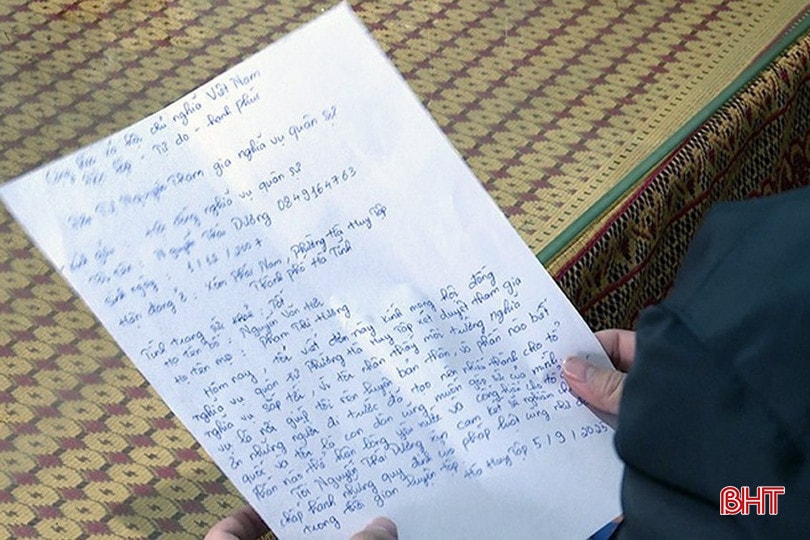 Cộng hòa xã hội chủ nghĩa Việt Nam
Độc lập - Tự do - hạnh phúc
Đơn Tự Nguyện Tham gia nghĩa vụ quân sự
Kính gửi: Hội đồng nghĩa vụ quân sự
Tôi tên: Nguyễn Thái Dương 0849164763
Sinh ngày: 1/12/2007
Hiện đang ở: Xóm Phái Nam, Phường Hà Huy Tập
Thành phố Hà Tĩnh
Tình trạng sức khỏe: Tốt
Họ tên bố: Nguyễn Văn Tiến
Họ tên mẹ: Phan Thị Hường
Hôm nay, tôi viết đơn này kính mong hội đồng
nghĩa vụ quân sự Phường Hà Huy Tập xét duyệt tham gia
nghĩa vụ sắp tới, vì tôi nhận thấy môi trường nghĩa
vụ là nơi giúp tôi rèn luyện bản thân, và phần nào biết
ơn những người đi trước đã tạo nên
quốc và tôi là con dân cũng muốn góp sức của mình
phần nào thể hiện lòng yêu nước và cống hiến cho tổ
Tôi Nguyễn Thái Dương xin cam kết sẽ nghiêm
chấp hành những quy định của pháp luật cũng như
trong thời gian huấn luyện
Hà Huy Tập 5/9/2025
BHT